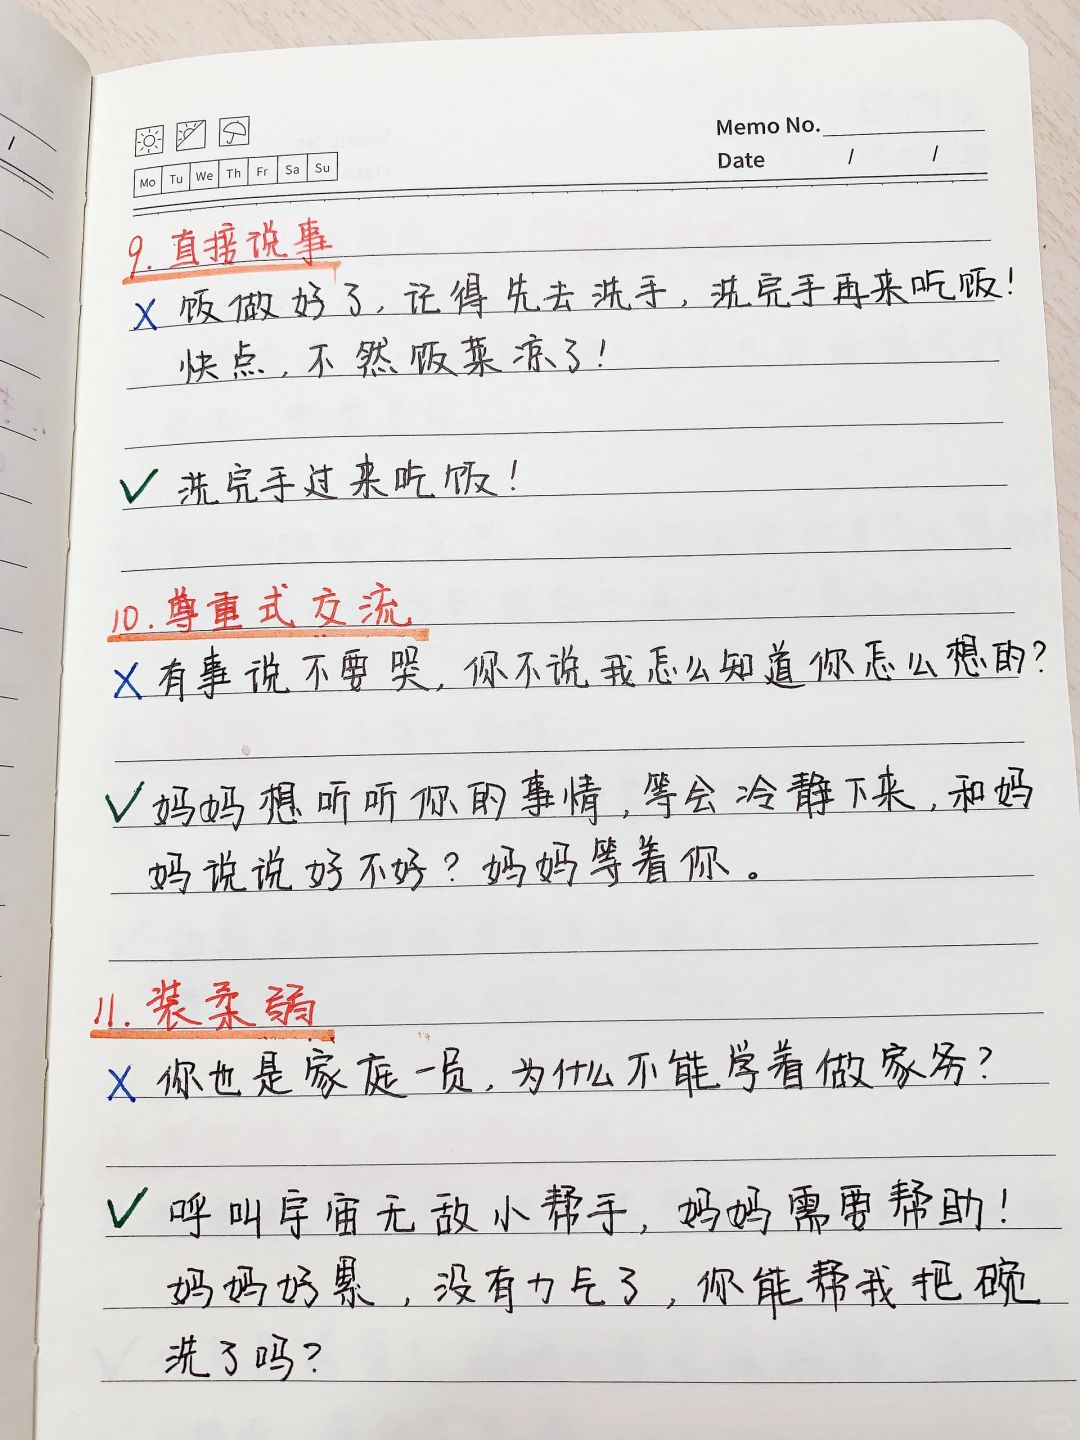 Memo No.
Date / /
Mo Tu We Th Fr Sa Su
9. 直接说事
X 饭做好了, 记得先去洗手, 洗完手再来吃饭!
快点, 不然饭菜凉了!
✓ 洗完手过来吃饭!
10. 尊重式交流
X 有事说不要哭, 你不说我怎么知道你怎么想的?
✓ 妈妈想听听你的事情, 等会冷静下来, 和妈
妈说说好不好? 妈妈等着你。
11. 装柔弱
X 你也是家庭一员, 为什么不能学着做家务?
✓ 呼叫宇宙无敌小帮手, 妈妈需要帮助!
妈妈好累, 没有力气了, 你能帮我把碗
洗了吗?